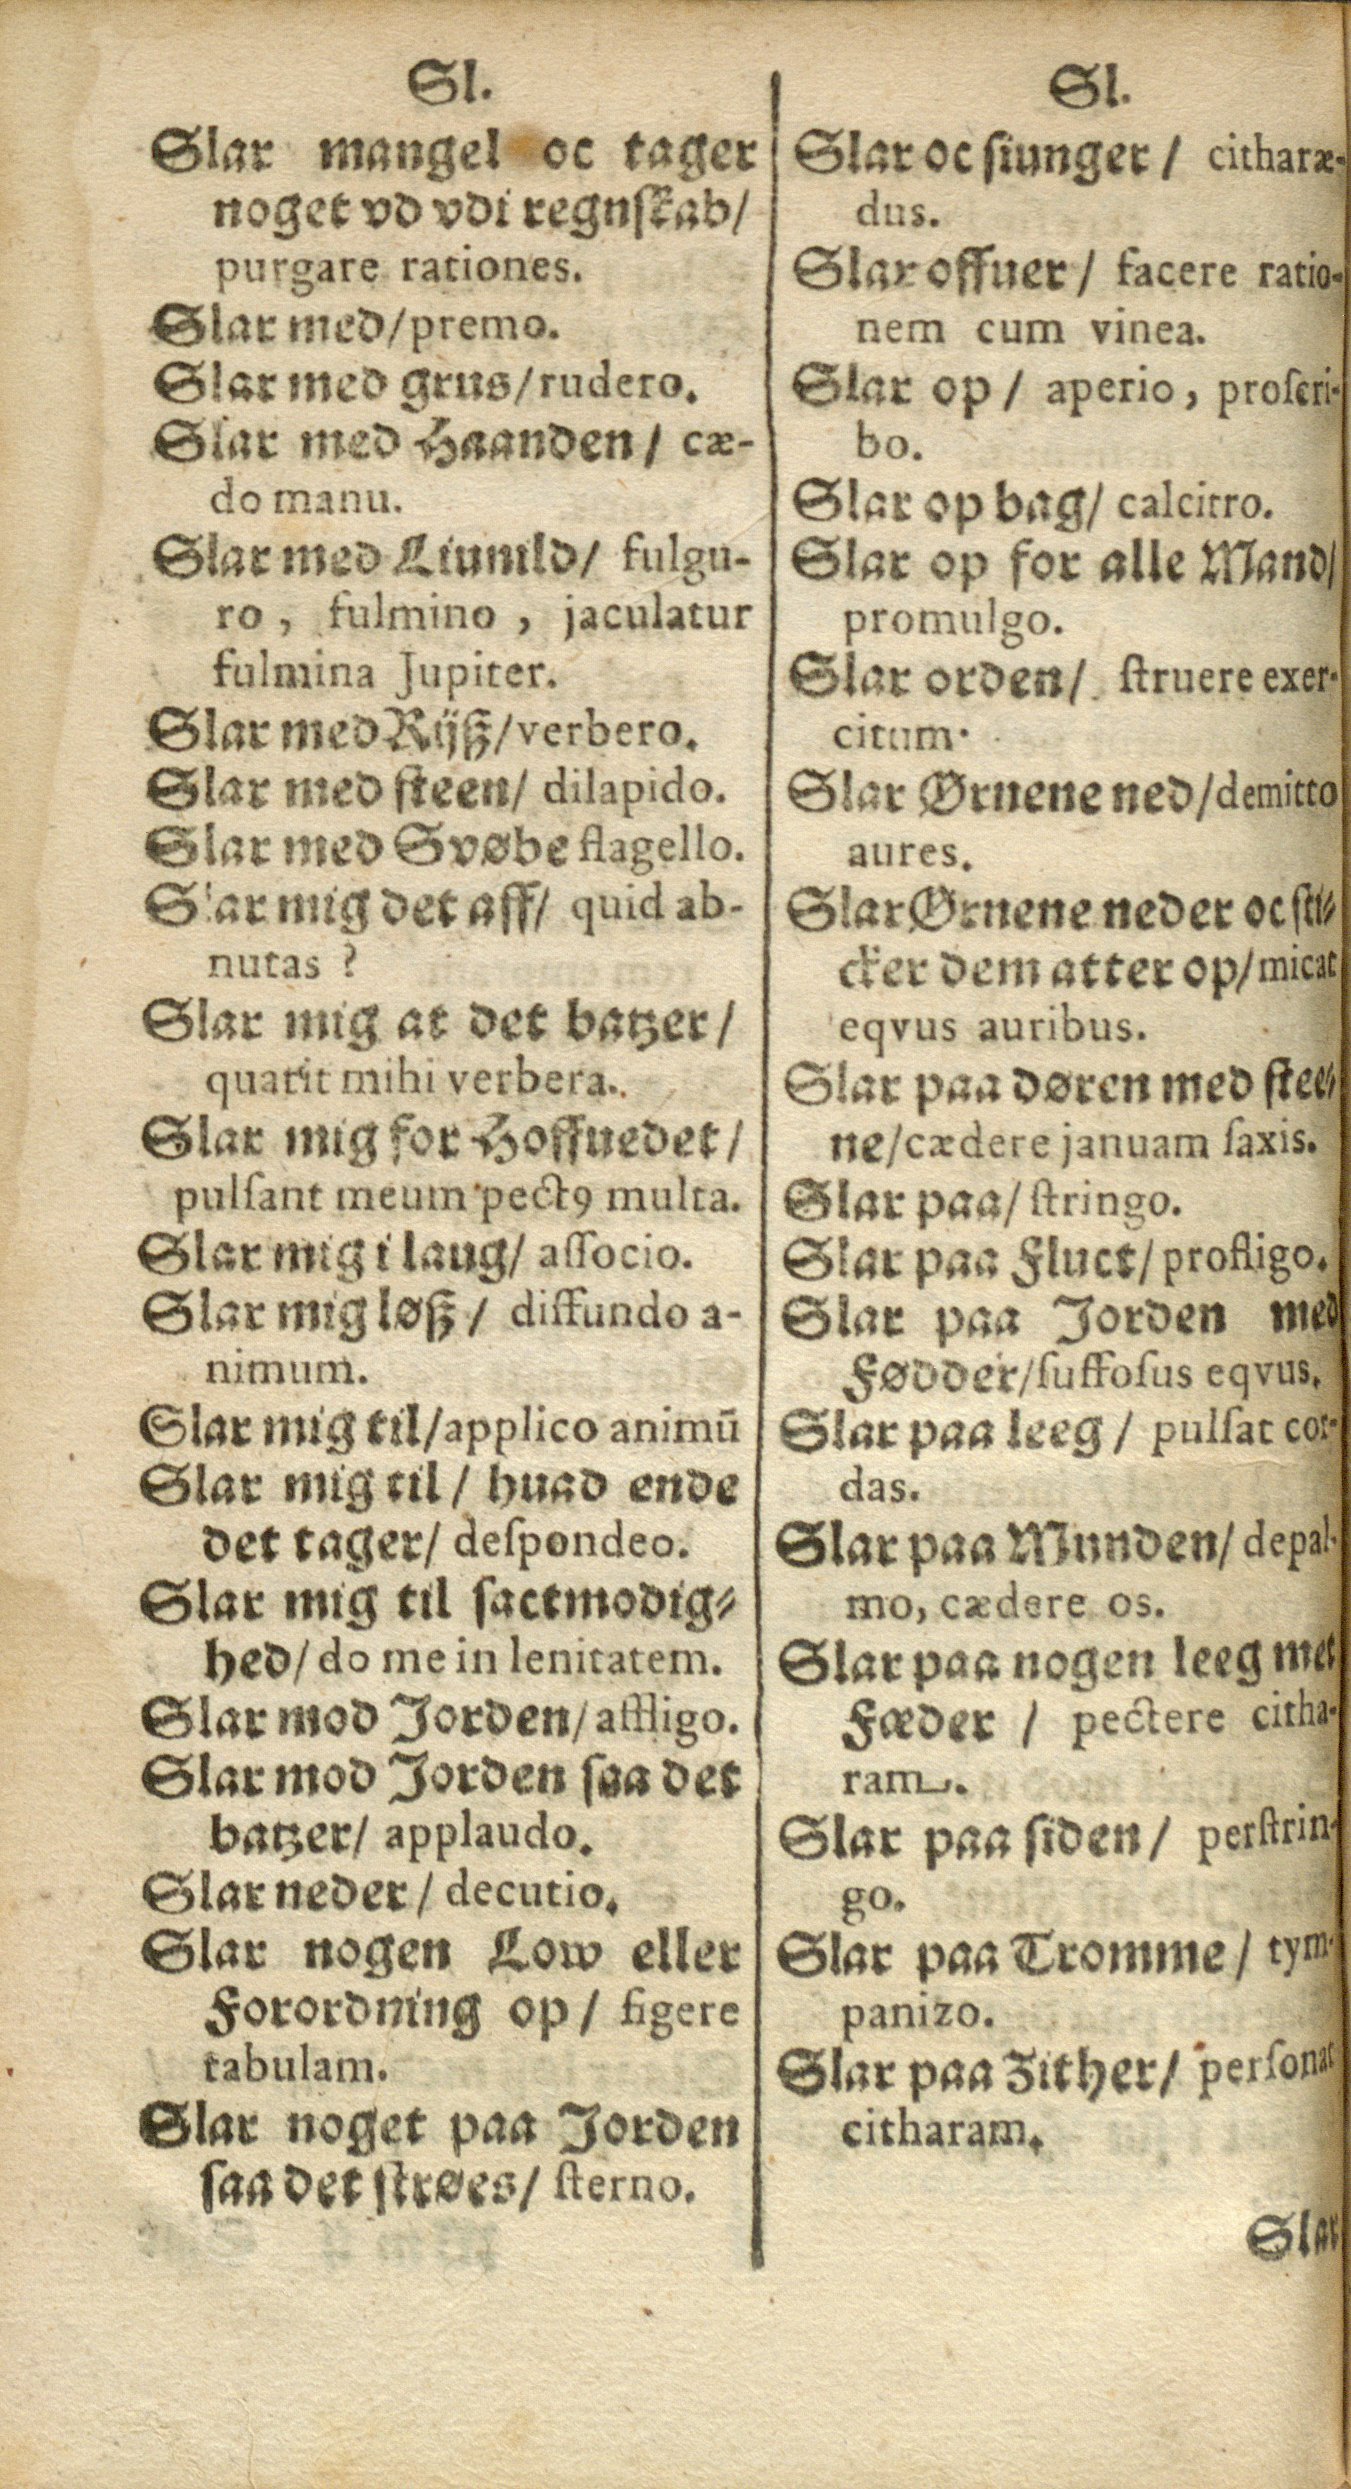 Sl.
Slar mangel oc tager
noget vd vdi regnſkab/
purgare rationes.
Slar med/premo.
Slar med grus/rudero.
Slar med Haanden/ cæ-
do manu.
Slar med Liunild/ fulgu-
ro, fulmino, jaculatur
fulmina Jupiter.
Slar med Rijß/verbero.
Slar med ſteen/ dilapido.
Slar med Svøbe flagello.
Slar mig det aff/ quid ab-
nutas?
Slar mig at det batzer/
quatit mihi verbera.
Slar mig for Hoffuedet/
pulſant meum pectꝯ multa.
Slar mig i laug/ aſſocio.
Slar mig løß/ diffundo a-
nimum.
Slar mig til/applico animū
Slar mig til/ huad ende
det tager/ deſpondeo.
Slar mig til ſactmodig-
hed/ do me in lenitatem.
Slar mod Jorden/affligo.
Slar mod Jorden ſaa det
batzer/ applaudo.
Slar neder/ decutio.
Slar nogen Low eller
Forordning op/ figere
tabulam.
Slar noget paa Jorden
ſaa det ſtrøes/ ſterno.
Sl.
Slar oc ſiunger/ citharæ-
dus.
Slar offuer/ facere ratio-
nem cum vinea.
Slar op/ aperio, proſcri-
bo.
Slar op bag/ calcitro.
Slar op for alle Mand/
promulgo.
Slar orden/ ſtruere exer-
citum.
Slar Ørnene ned/demitto
aures.
Slar Ørnene neder oc ſti-
cker dem atter op/micat
eqvus auribus.
Slar paa døren med ſtee-
ne/cædere januam ſaxis.
Slar paa/ ſtringo.
Slar paa Fluct/profligo.
Slar paa Jorden med
Fødder/ſuffoſus eqvus.
Slar paa leeg/ pulſat cor-
das.
Slar paa Munden/ depal-
mo, cædere os.
Slar paa nogen leeg met
Fæder/ pectere citha-
ram.
Slar paa ſiden/ perſtrin-
go.
Slar paa Tromme/ tym-
panizo.
Slar paa Zither/ perſonat
citharam.
Slar